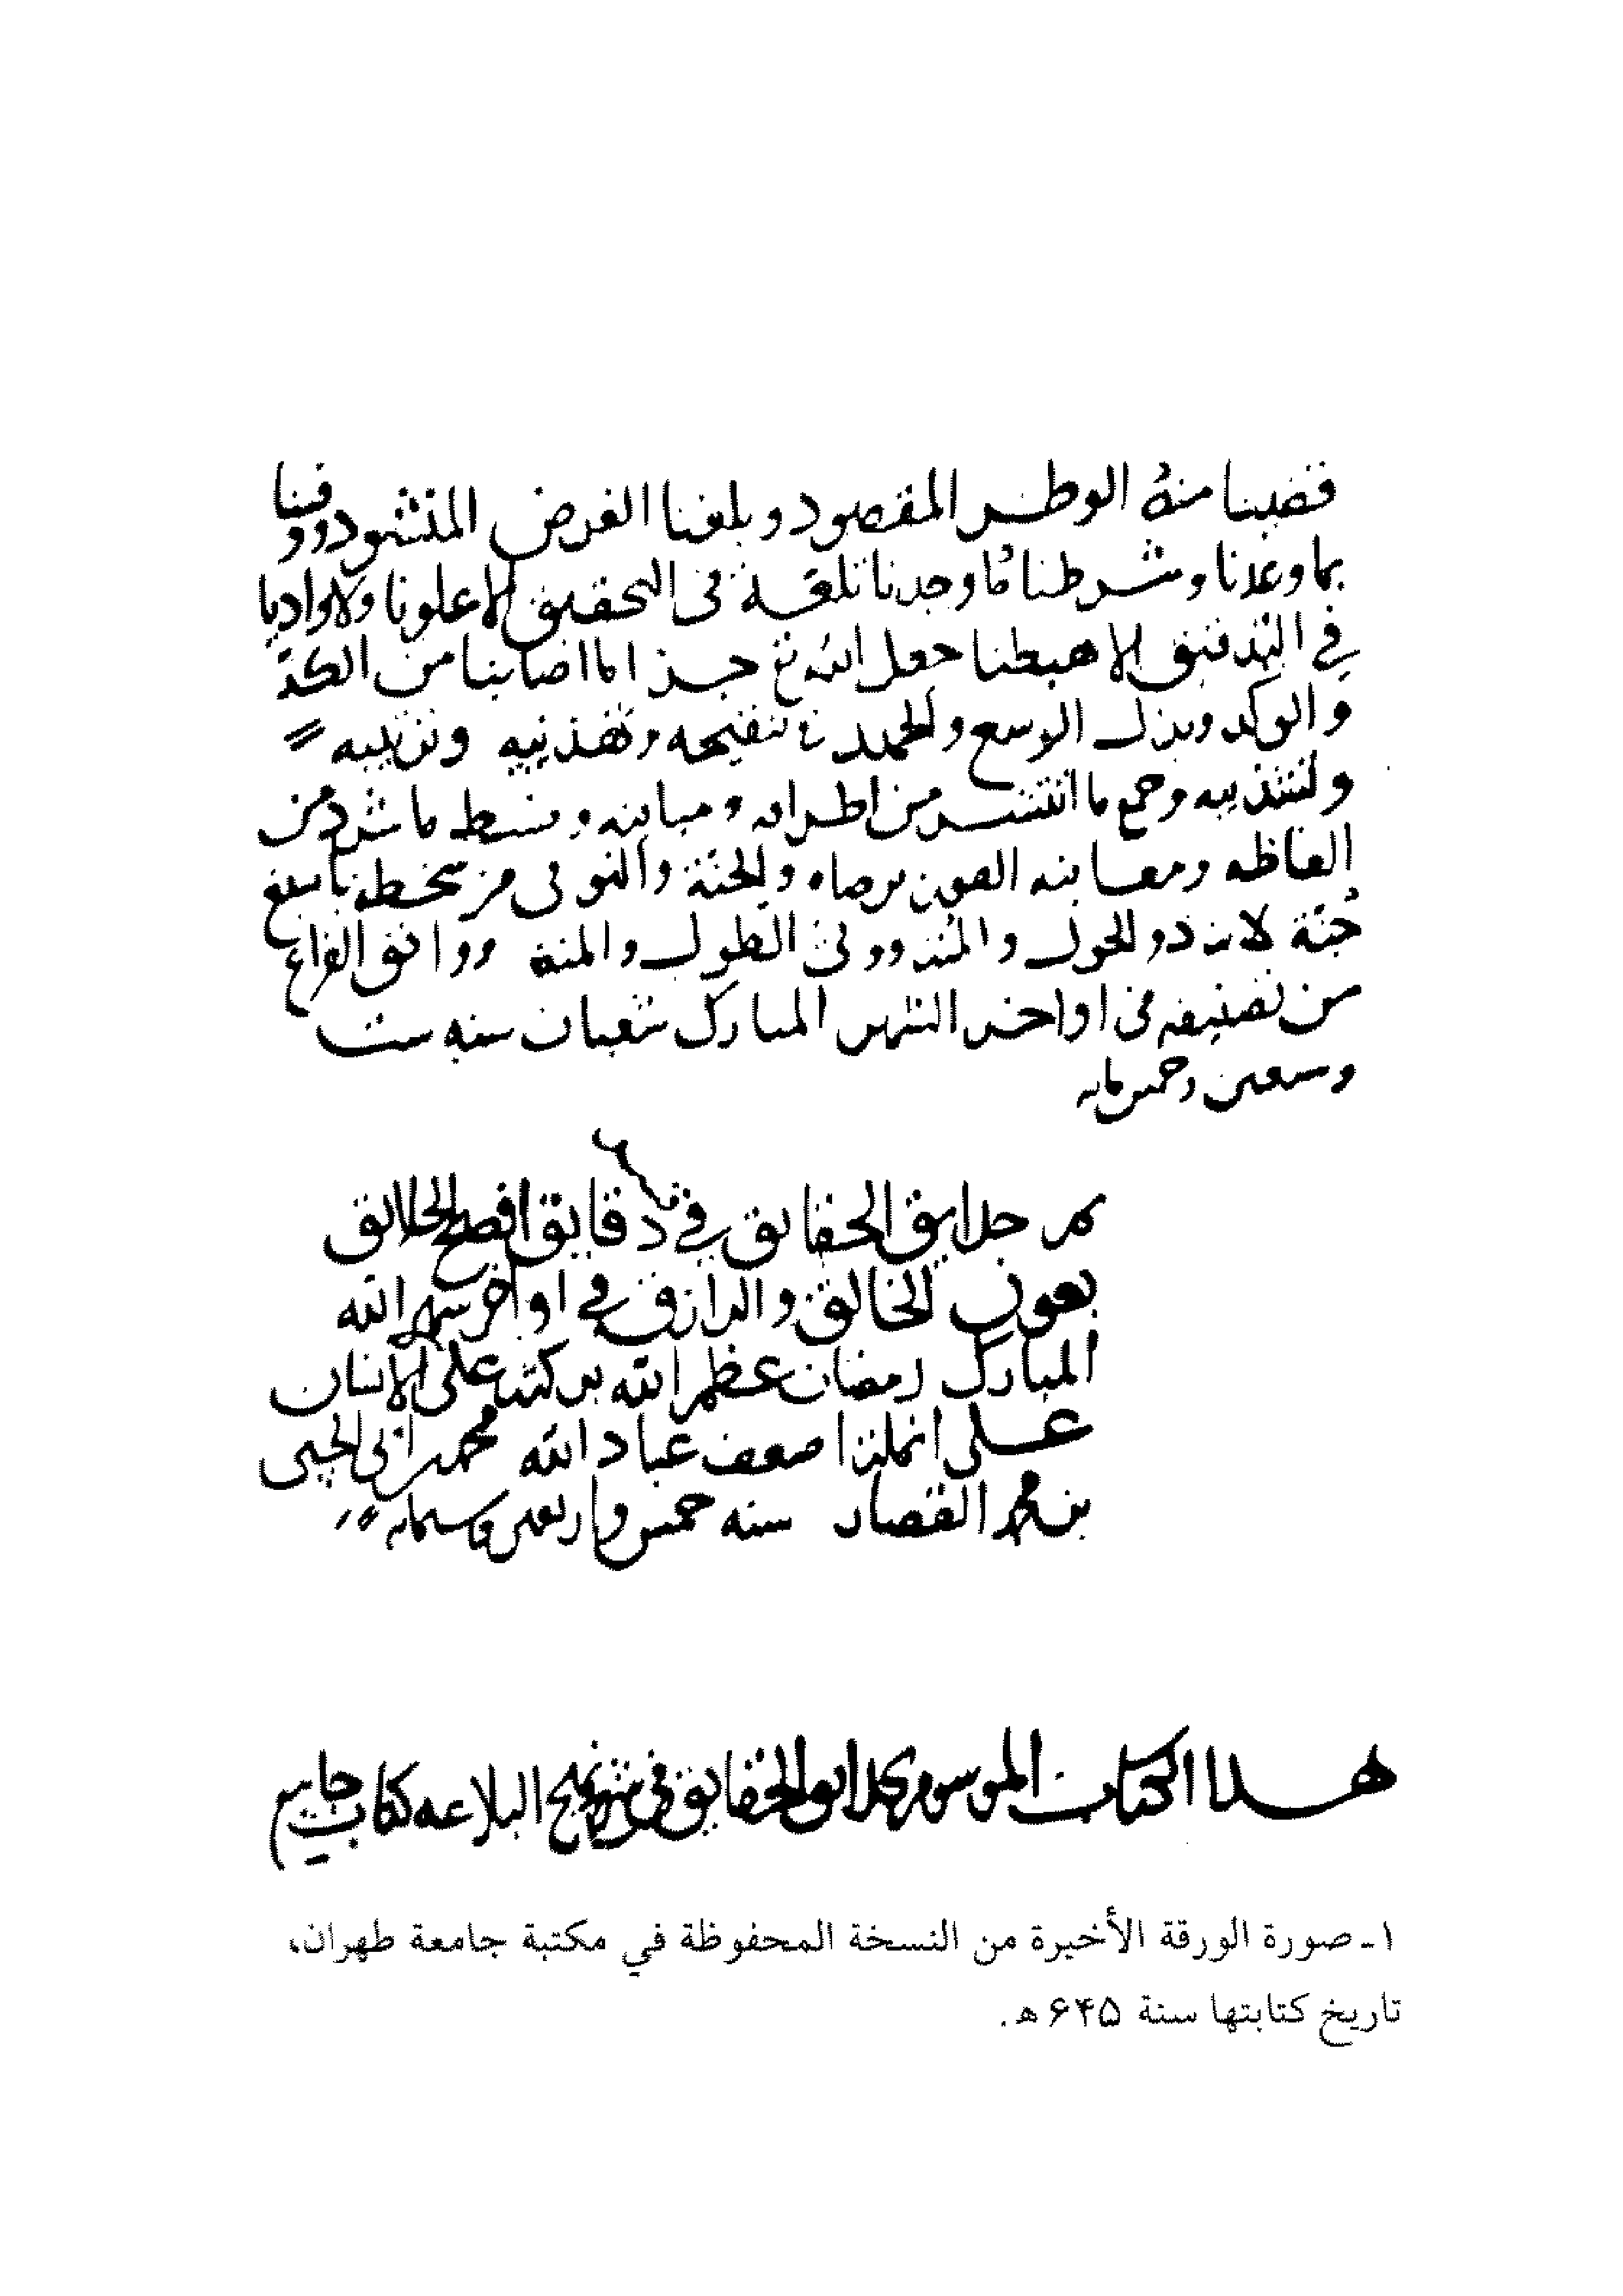 قضينا منهُ الوطر المقصود و بلغنا الغرض المنشود ووفينا
بما وعدنا وشرطنا فما وجدنا تلقة في التحقيق الا علونا ولا واديا
في التدقيق الا هبطنا جعل الله تع جزا ما اصابنا من الكد
والوكد وبذل الوسع والجهد في تنقيحه وتهذيبه وترتيبه
وتشذيبه وجمع ما انتشر من اطرافه ومباينه وبسط ما شرد من
الفاظه ومعانيه الفوز برضاه والجنة والتوقى من سخطه باسبغ
جُنّة لانه ذو الحول والمُنه وولي الطول والمنه ووافق الفراغ
من تصنيفه في اواخر الشهر المبارك شعبان سنه ست
وسبعين وخمس مايه
تم حدايق الحقايق في دقايق افصح الخلايق
بعون الخالق والرازق في اواخر شهر الله
المبارك رمضان عظم الله بركته على الانسان
على انملة اضعف عباد الله محمد
بن محمد القصار سنه خمس واربعين وستمايه
هذا الكتاب الموسوم بحدايق الحقايق في شرح نهج البلاغه كتاب
١ـ صورة الورقة الأخيرة من النسخة المحفوظة في مكتبة جامعة طهران،
تاريخ كتابتها سنة ۶۴۵ ه‍ .